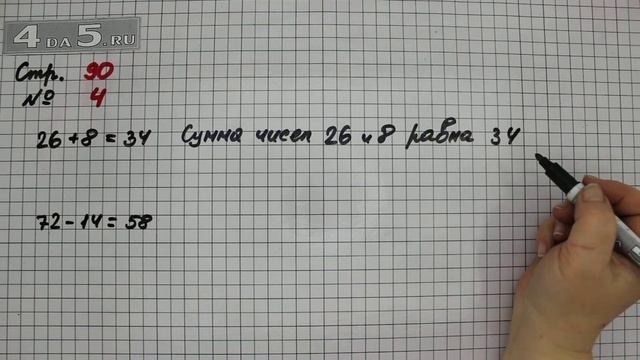 4DA5.RU
Стр. 90
№ 4
26 + 8 = 34 Сумма чисел 26 и 8 равна 34
72 - 14 = 58